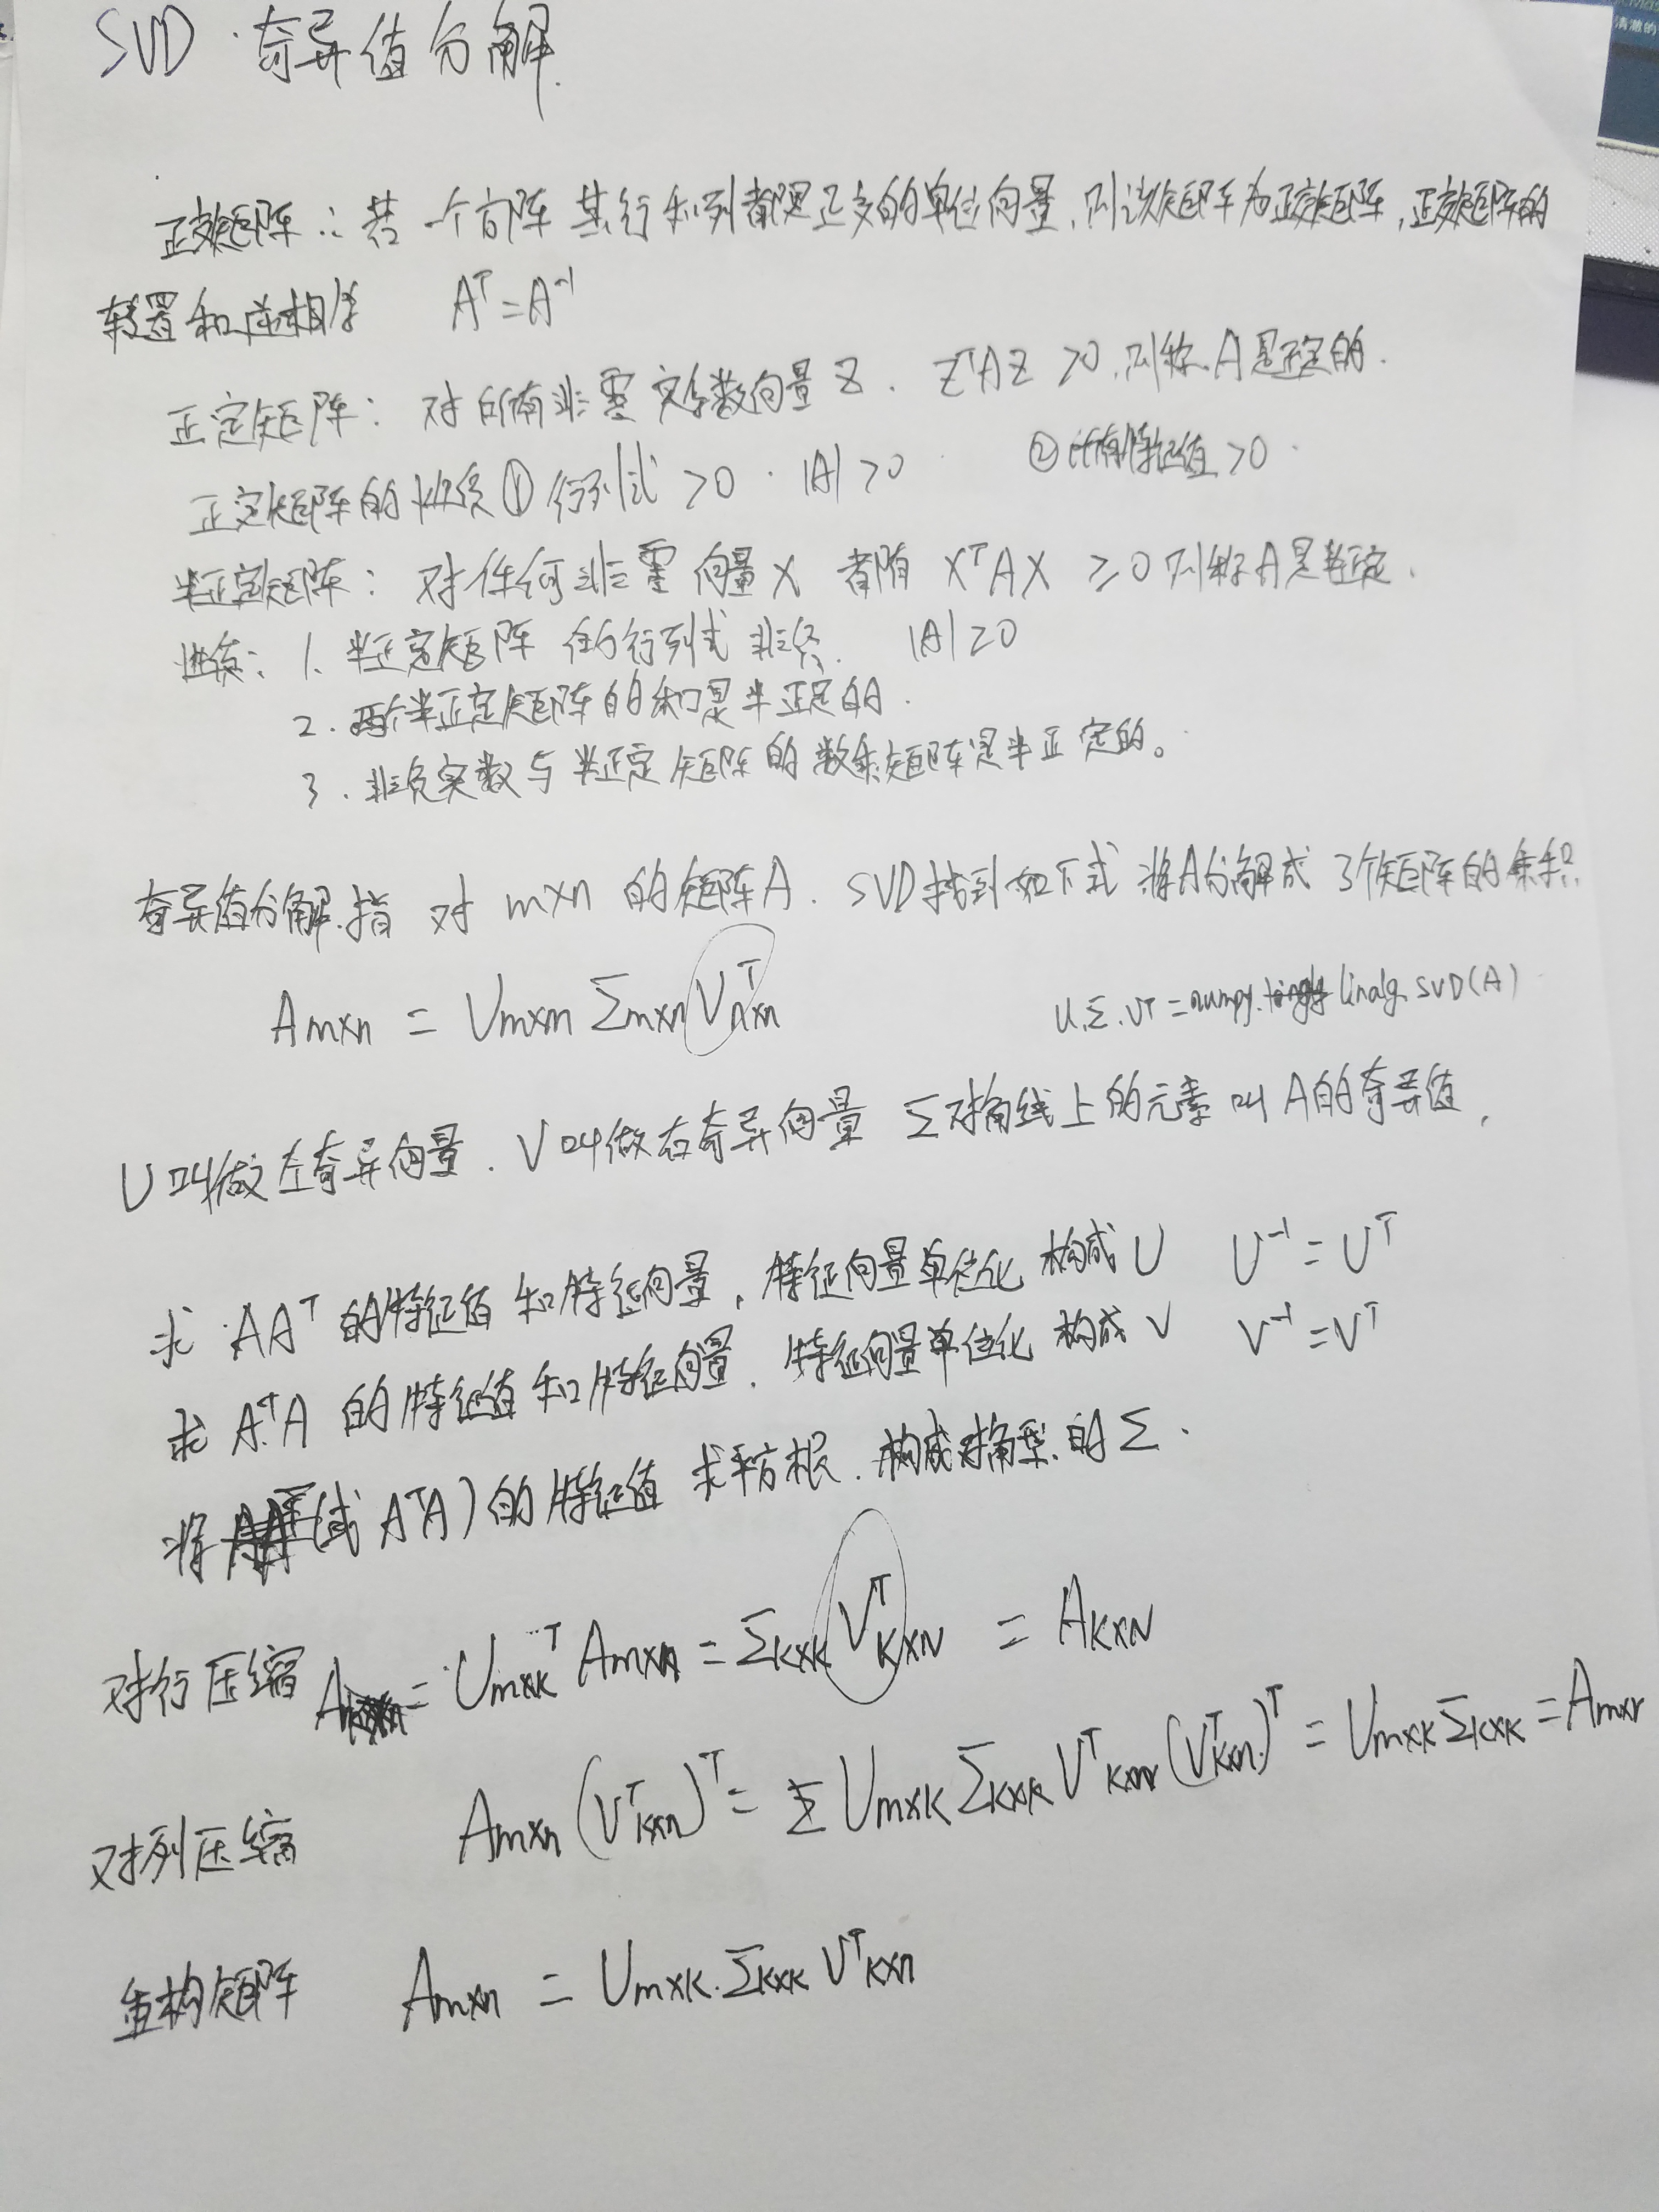 SVD · 奇异值分解.
正交矩阵:若一个方阵其行和列都是正交的单位向量,则该矩阵为正交矩阵,正交矩阵的
转置和逆相等 Aᵀ=A⁻¹
正定矩阵:对所有非零实系数向量Z. ZᵀAZ >0,则称A是正定的.
正定矩阵的性质①行列式>0 · |A|>0 ②所有特征值>0 ·
半正定矩阵:对任何非零向量X 都有 XᵀAX ≥0则称A是半正定.
性质:1. 半正定矩阵的行列式非负. |A|≥0
2. 两个半正定矩阵的和是半正定的.
3. 非负实数与半正定矩阵的数乘矩阵是半正定的。
奇异值分解.指 对 m×n 的矩阵A. SVD找到如下式 将A分解成 3个矩阵的乘积
Am×n = Um×m Σm×n Vᵀn×n
U.Σ.VT = numpy. linalg. SVD(A)
U叫做左奇异向量. V叫做右奇异向量 Σ对角线上的元素叫A的奇异值,
求 AAᵀ的特征值和特征向量,特征向量单位化 构成U U⁻¹=Uᵀ
求 AᵀA 的特征值和特征向量. 特征向量单位化 构成V V⁻¹=Vᵀ
将AAᵀ(或 AᵀA)的特征值 求平方根. 构成对角型的Σ.
对行压缩 = Um×kᵀ Am×n = Σk×k Vᵀk×N = Ak×N
对列压缩 Am×n (Vᵀk×n)ᵀ = Um×k Σk×k Vᵀk×n (Vᵀk×n)ᵀ = Um×k Σk×k = Am×r
重构矩阵 Am×n = Um×k.Σk×k Vᵀk×n
清澈的